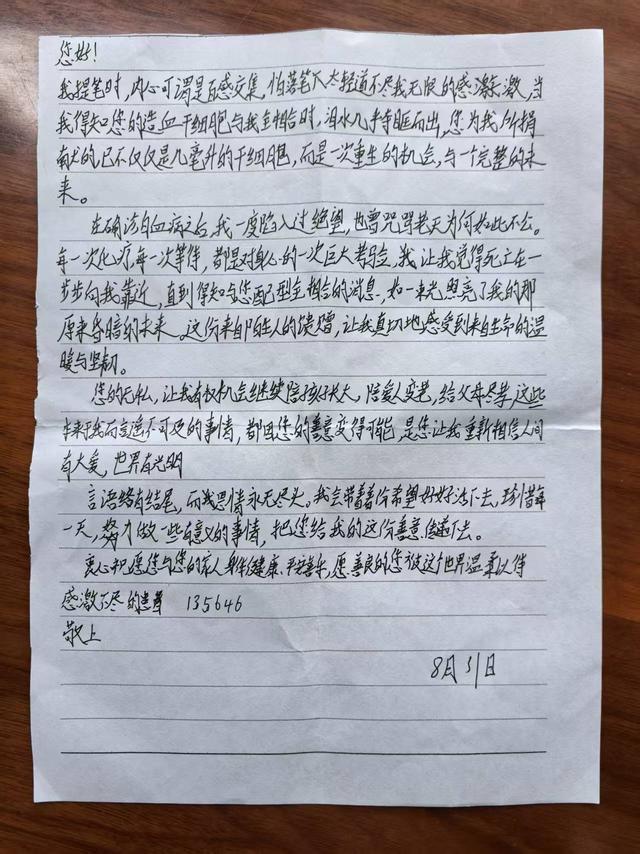 您好！
我提笔时，内心可谓是百感交集，怕落笔太轻道不尽我无限的感激，当
我得知您的造血干细胞与我全相合时，泪水几乎夺眶而出，您为我所捐
献的，已不仅仅是几毫升的干细胞，而是一次重生的机会，与一个完整的未
来。
在确诊白血病之后，我一度陷入过绝望，也曾咒骂老天为何如此不公。
每一次化疗，每一次等待，都是对身心的一次巨大考验，我让我觉得死亡在一
步步向我靠近，直到得知与您配型全相合的消息，如一束光照亮了我的那
原来昏暗的未来。这份来自陌生人的馈赠，让我真切地感受到来自生命的温
暖与坚韧。
您的无私，让我有权机会继续陪孩子长大，陪爱人变老，给父母尽孝，这些
本来于我而言遥不可及的事情，都因您的善意变得可能，是您让我重新相信人间
有大爱，世界有光明
言语终有结尾，而我恩情永无尽头。我会带着着份希望好好活下去，珍惜每
一天，努力做一些有意义的事情，把您给我的这份善意传递下去。
衷心祝愿您与您的家人身体健康、平安喜乐，愿善良的您被这个世界温柔以待
感激不尽的患者 135646
敬上
8月31日